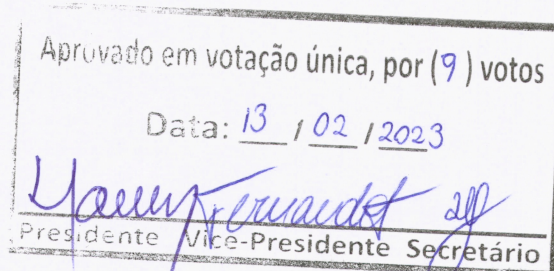 Aprovado em votação única, por (9) votos
Data: 13 / 02 / 2023
Fernandes
Presidente Vice-Presidente Secretário